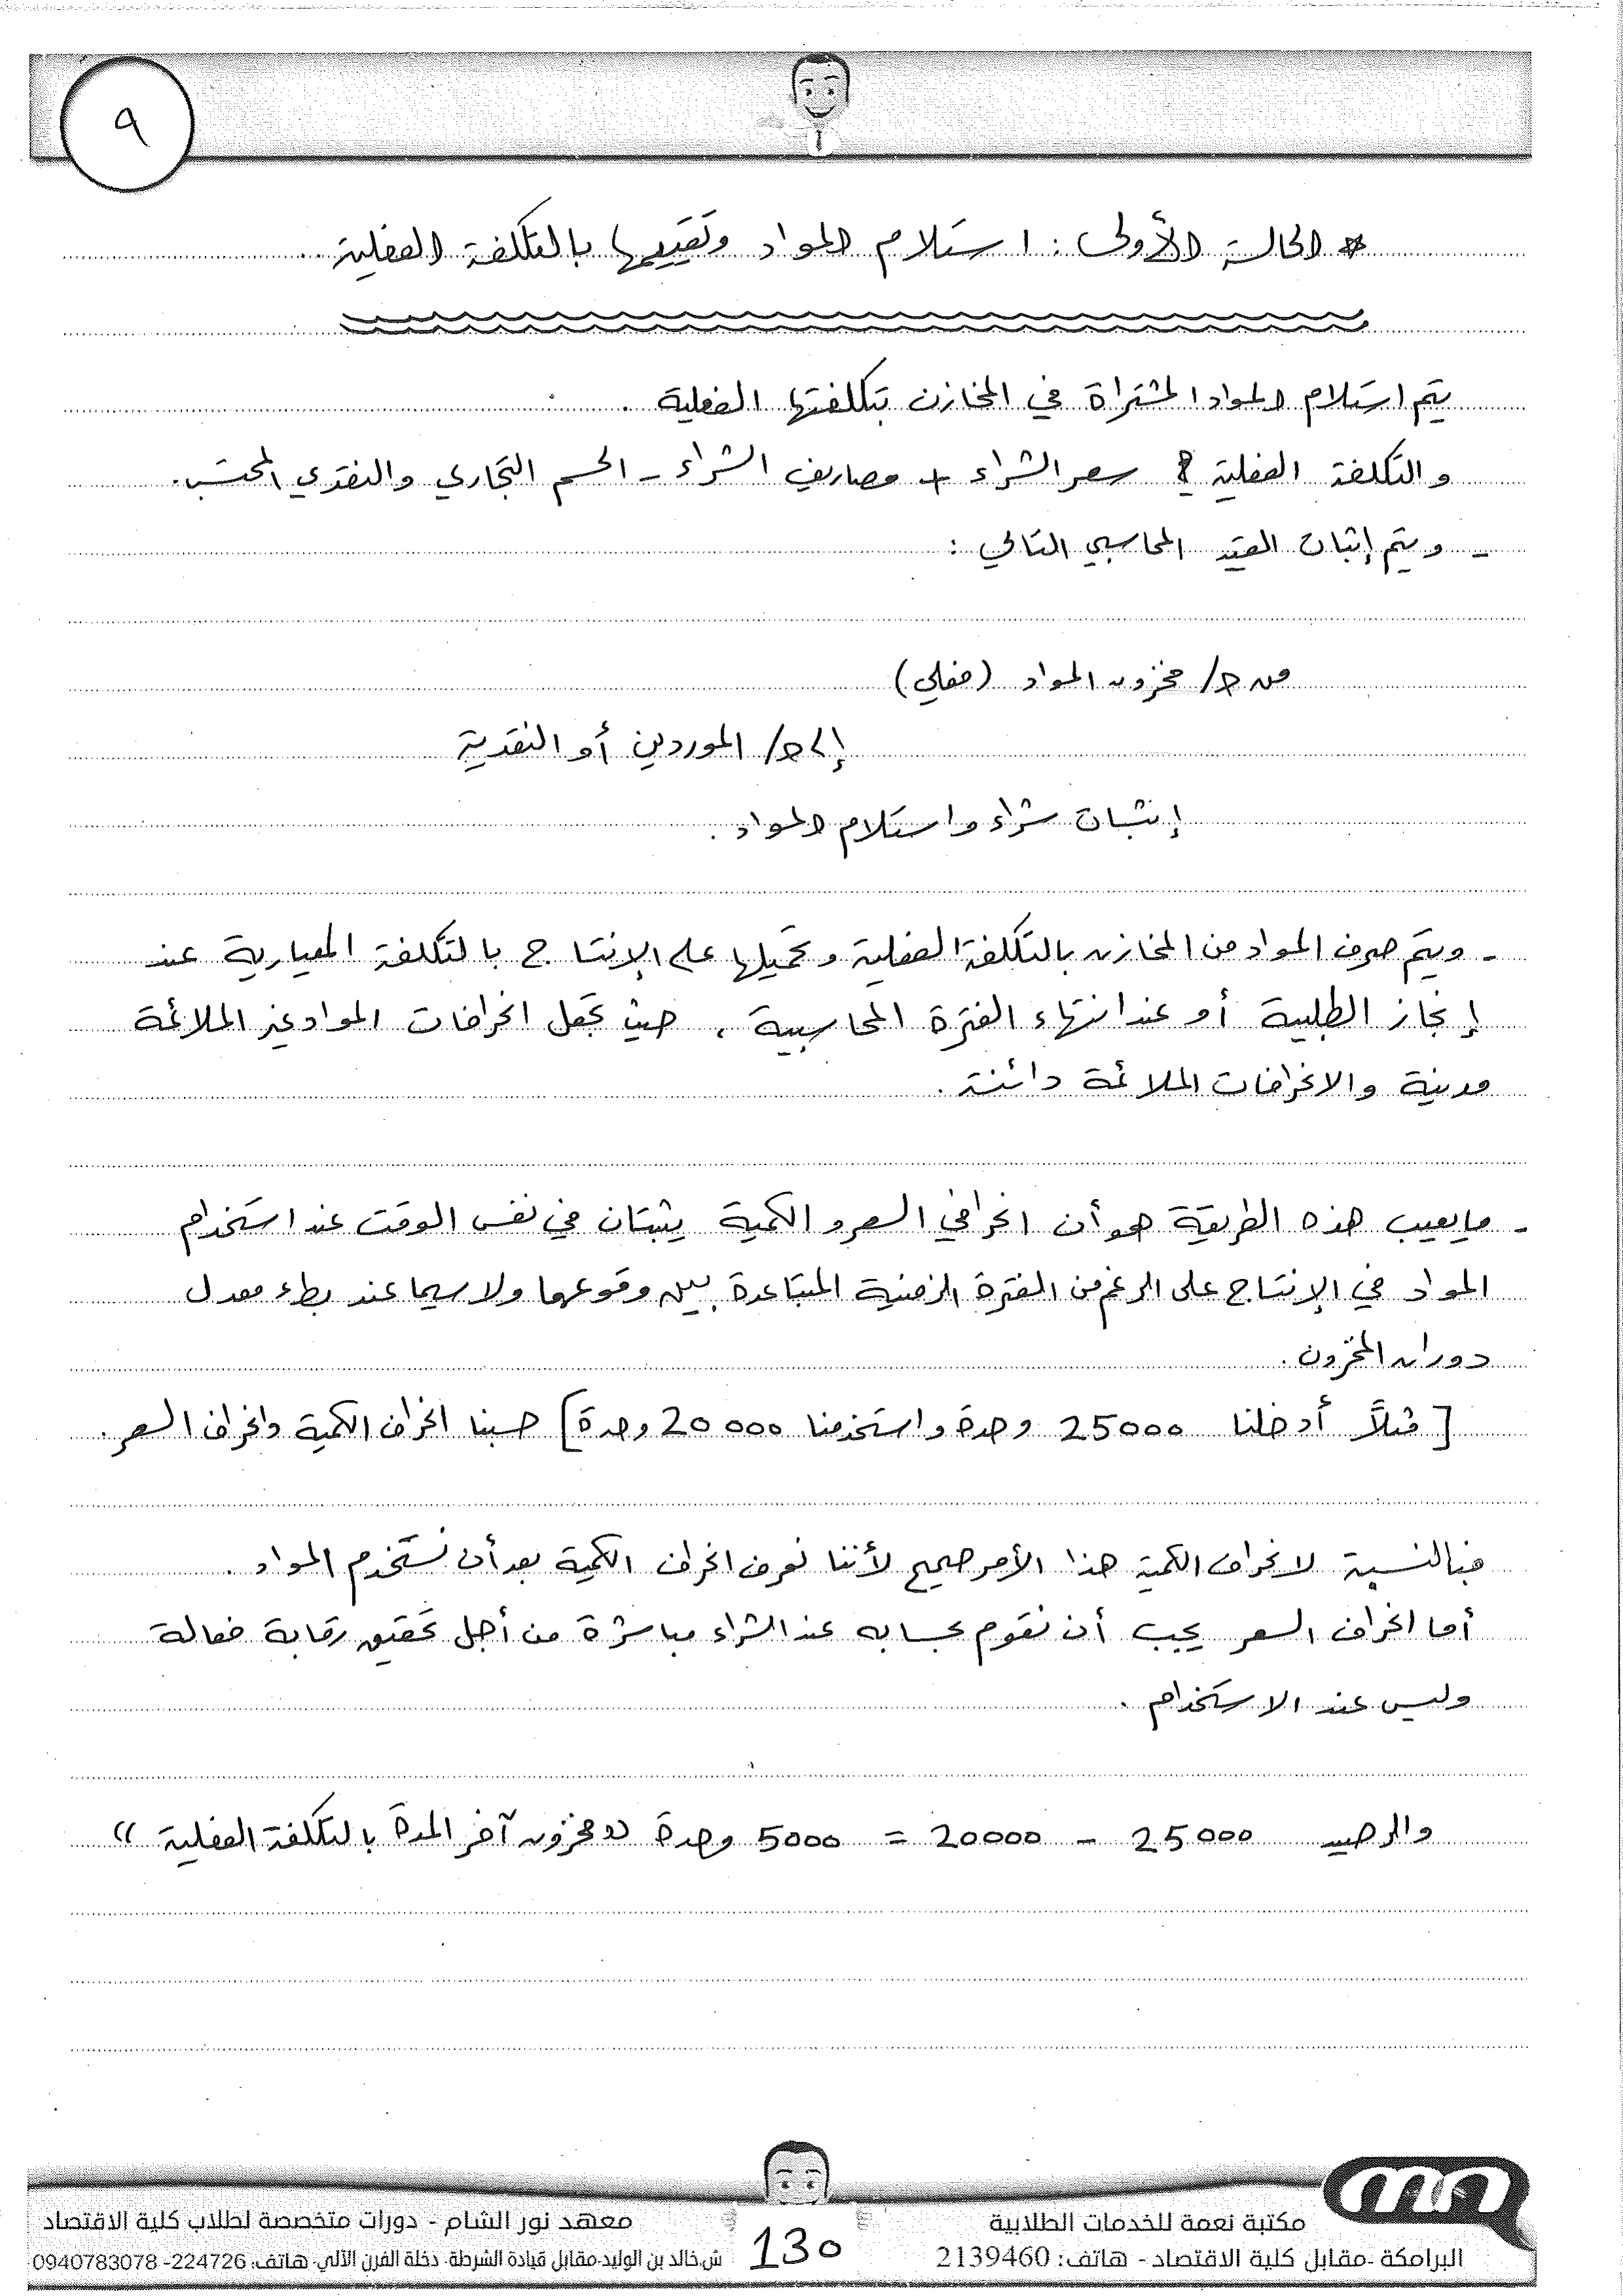 ٩
* الحالة الأولى : استلام المواد وتقييمها بالتكلفة الفعلية ..
يتم استلام المواد المشتراة في المخازن بتكلفتها الفعلية .
والتكلفة الفعلية : سعر الشراء + مصاريف الشراء - الحسم التجاري والنقدي المكتسب .
- ويتم إثبات القيد المحاسبي التالي :
من ح/ مخزون المواد (فعلي)
إلى ح/ الموردين أو النقدية
إثبات شراء واستلام المواد .
- ويتم صرف المواد من المخازن بالتكلفة الفعلية وتحميلها على الإنتاج بالتكلفة المعيارية عند
إنجاز الطلبية أو عند انتهاء الفترة المحاسبية ، حيث تجعل انحرافات المواد غير الملائمة
مدينة والانحرافات الملائمة دائنة .
- ما يعيب هذه الطريقة هو أن انحرافي السعر والكمية يثبتان في نفس الوقت عند استخدام
المواد في الإنتاج على الرغم من الفترة الزمنية المتباعدة بين وقوعهما ولا سيما عند بطء معدل
دوران المخزون .
[ مثلاً أدخلنا 25000 وحدة واستخدمنا 20000 وحدة ] حسبنا انحراف الكمية وانحراف السعر .
فبالنسبة لانحراف الكمية هذا الأمر صحيح لأننا نعرف انحراف الكمية بعد أن نستخدم المواد .
أما انحراف السعر يجب أن نقوم بحسابه عند الشراء مباشرة من أجل تحقيق رقابة فعالة
وليس عند الاستخدام .
والرصيد 25000 - 20000 = 5000 وحدة «مخزون آخر المدة بالتكلفة الفعلية»
مكتبة نعمة للخدمات الطلابية
البرامكة -مقابل كلية الاقتصاد - هاتف: 2139460
130
معهد نور الشام - دورات متخصصة لطلاب كلية الاقتصاد
ش.خالد بن الوليد-مقابل قيادة الشرطة- دخلة الفرن الآلي- هاتف: 224726- 0940783078